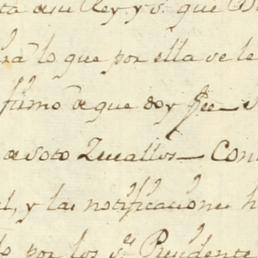 ta de su Rey, y s.r que D
ra lo que por ella se le
firmo de que doy fee
de Soto Zevallos — Con
l, y las notificacione h
lo por los s.res Presidente